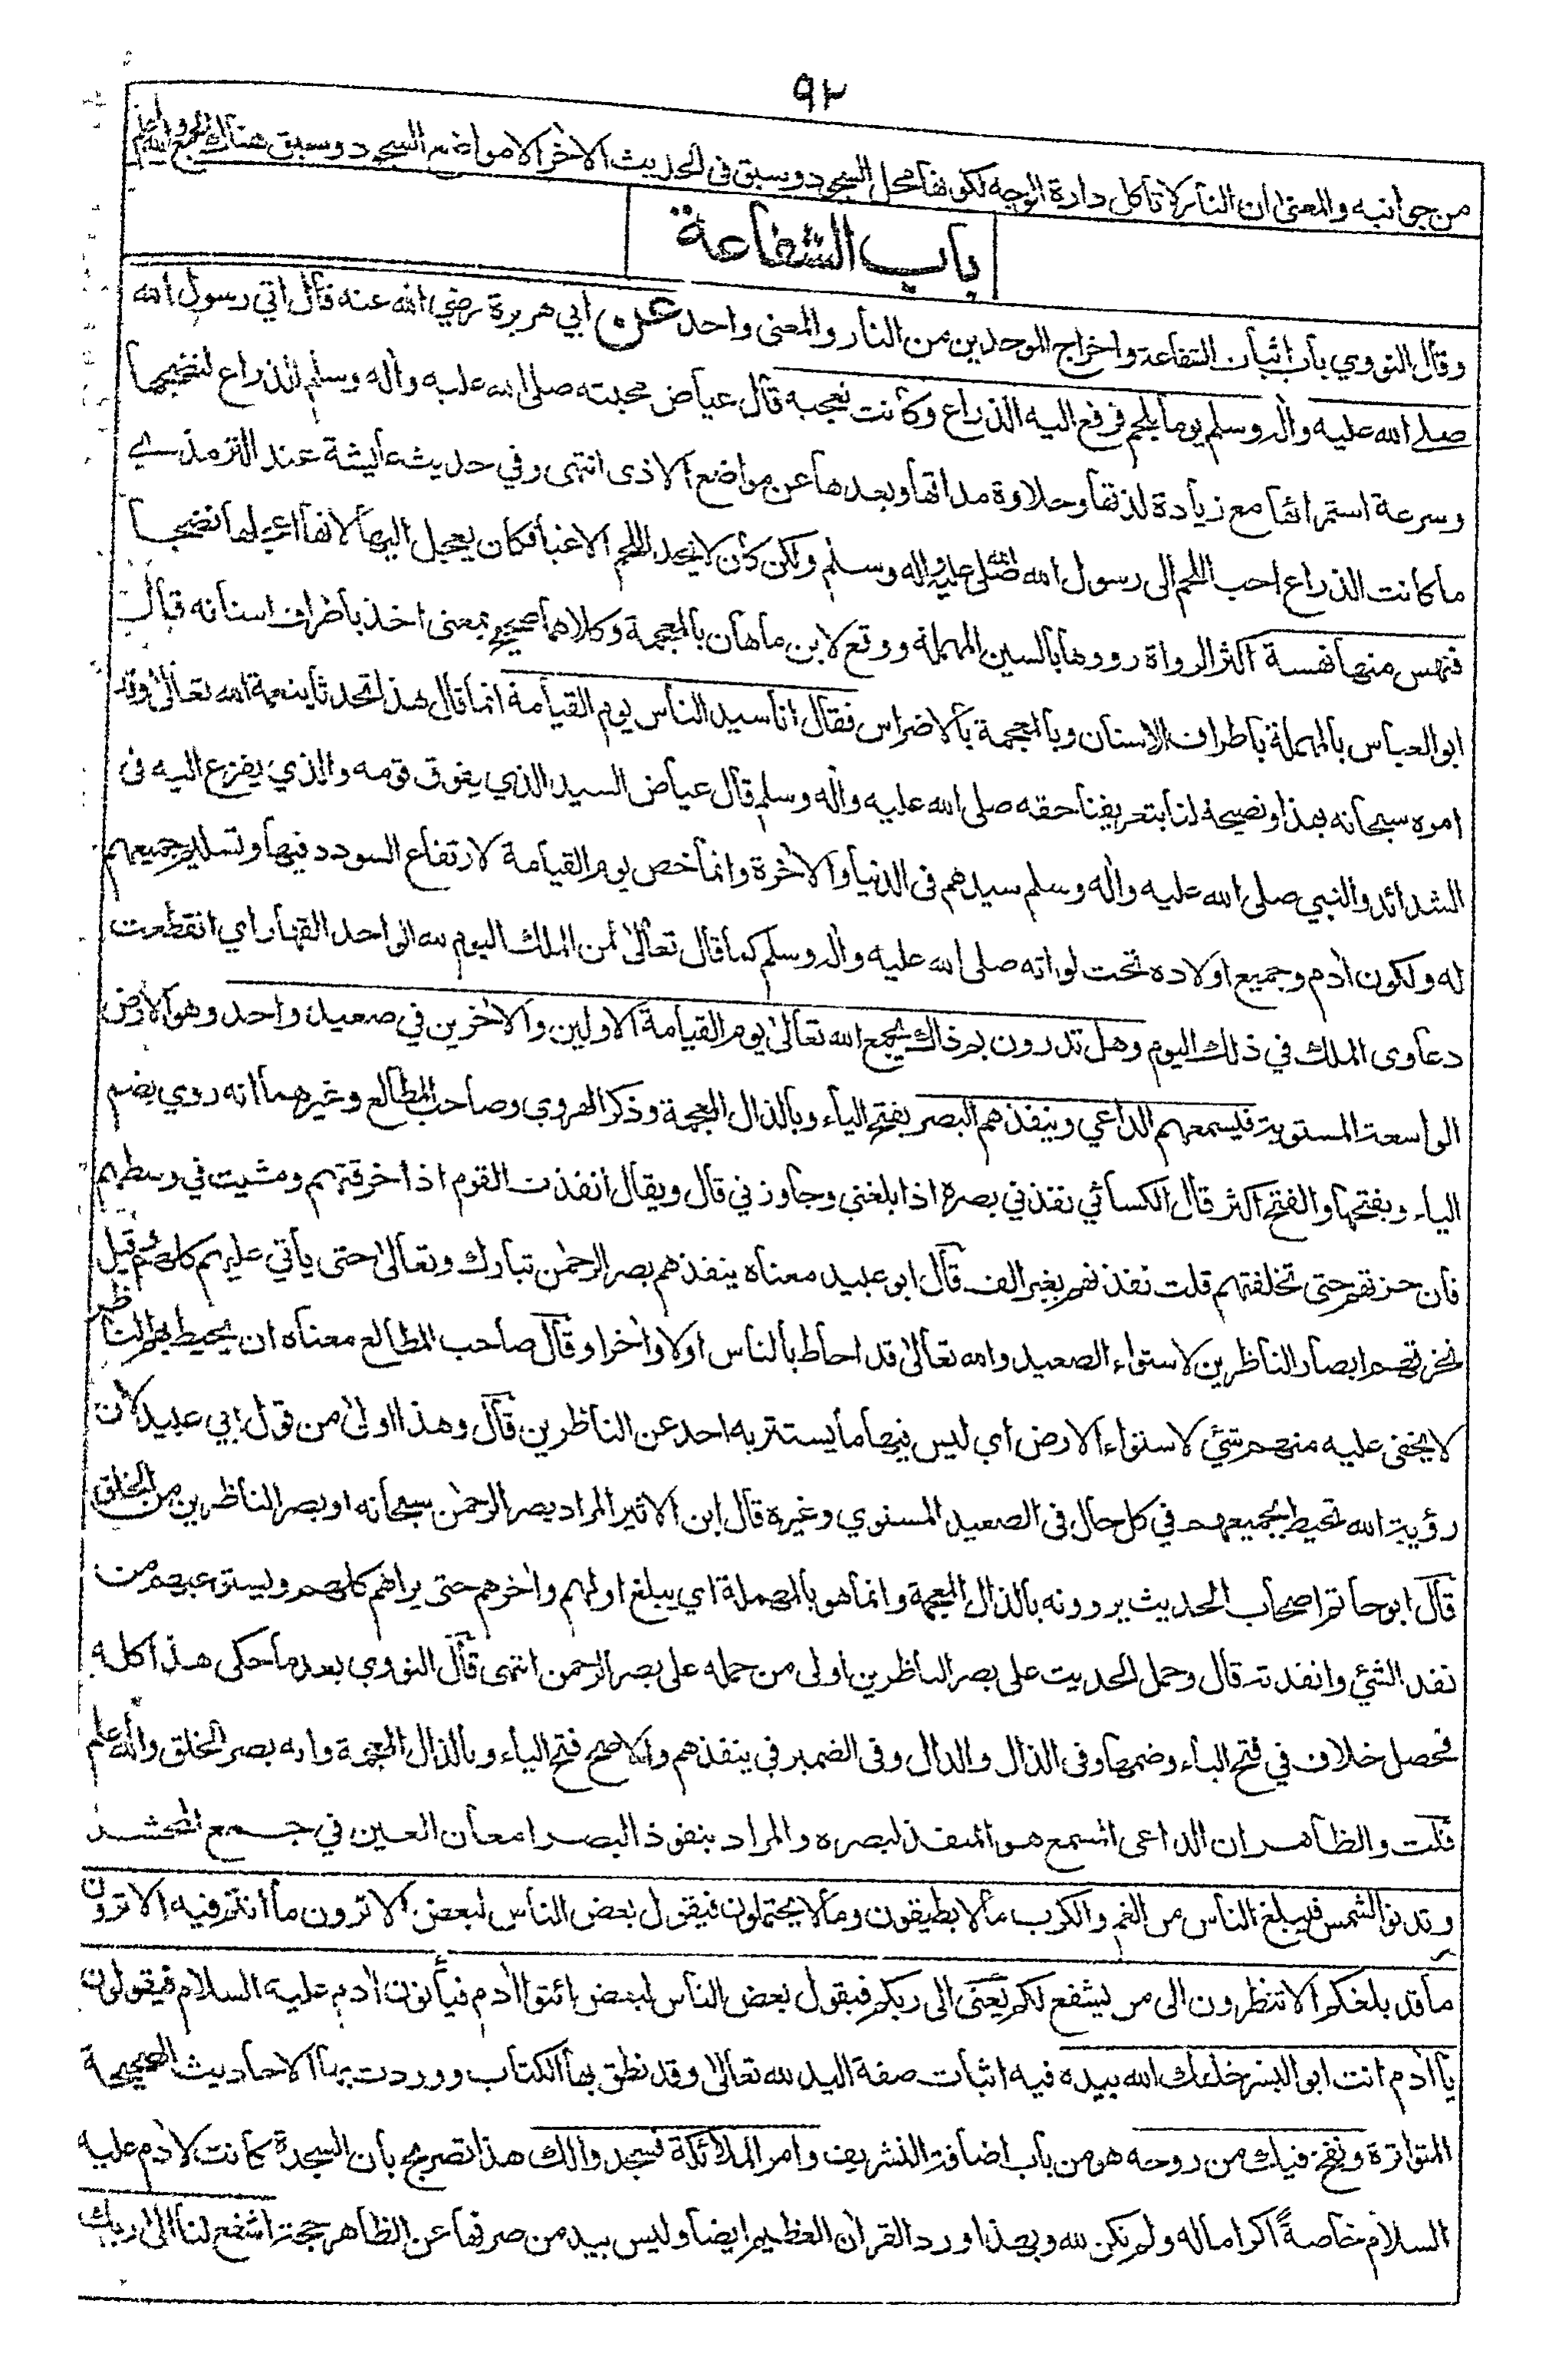 ٩٢
من جوانبه والمعنى ان النار لا تأكل دارة الوجه لكونها محل السجود وسبق فى الحديث الاخر الا مواضع السجود وسبق هناك الجمع والله اعلم
باب الشفاعة
وقال النووي باب اثبات الشفاعة واخراج الموحدين من النار والمعنى واحد عن ابي هريرة رضي الله عنه قال اتي رسول الله
صلى الله عليه واله وسلم يوما بلحم فرفع اليه الذراع وكانت تعجبه قال عياض محبته صلى الله عليه واله وسلم للذراع لنضجها
وسرعة استمرائها مع زيادة لذتها وحلاوة مذاقها وبعدها عن مواضع الاذى انتهى وفي حديث عايشة عند الترمذي
ما كانت الذراع احب اللحم الى رسول الله صلى الله عليه واله وسلم ولكن كان لا يجد اللحم الا غبا فكان يعجل اليها لانها اعجلها نضجا
فنهس منها نهسة اكثر الرواة رووها بالسين المهملة ووقع لابن ماهان بالمعجمة وكلاهما صحيح بمعنى اخذ باطراف اسنانه قال
ابو العباس بالمهملة باطراف الاسنان وبالمعجمة بالاضراس فقال انا سيد الناس يوم القيامة انما قال هذا تحدثا بنعمة الله تعالى وقد
امره سبحانه بهذا ونصيحة لنا بتعريفنا حقه صلى الله عليه واله وسلم قال عياض السيد الذي يفوق قومه والذي يفزع اليه فى
الشدائد والنبي صلى الله عليه واله وسلم سيدهم فى الدنيا والاخرة وانما خص يوم القيامة لارتفاع السودد فيها وتسليم جميعهم
له ولكون ادم وجميع اولاده تحت لوائه صلى الله عليه واله وسلم كما قال تعالى لمن الملك اليوم لله الواحد القهار اي انقطعت
دعاوى الملك في ذلك اليوم وهل تدرون بم ذاك يجمع الله تعالى يوم القيامة الاولين والاخرين في صعيد واحد وهو الارض
الواسعة المستوية فيسمعهم الداعي وينفذهم البصر بفتح الياء وبالذال المعجمة وذكر الهروي وصاحب المطالع وغيرهما انه روي بضم
الياء وبفتحها والفتح اكثر قال الكسائي نفذني بصره اذا بلغني وجاوزني قال ويقال انفذت القوم اذا خرقتهم ومشيت في وسطهم
فان جزتهم حتى تخلفتهم قلت نفذتهم بغير الف قال ابو عبيد معناه ينفذهم بصر الرحمن تبارك وتعالى حتى يأتي عليهم كلهم وقيل
تخرقهم ابصار الناظرين لاستواء الصعيد والله تعالى قد احاط بالناس اولا واخرا وقال صاحب المطالع معناه ان يحيط بهم الناظر
لا يخفى عليه منهم شئ لاستواء الارض اي ليس فيها ما يستتر به احد عن الناظرين قال وهذا اولى من قول ابي عبيد لان
رؤية الله تحيط بجميعهم في كل حال فى الصعيد المستوي وغيره قال ابن الاثير المراد بصر الرحمن سبحانه او بصر الناظرين من الخلق
قال ابو حاتم اصحاب الحديث يروونه بالذال المعجمة وانما هو بالمهملة اي يبلغ اولهم واخرهم حتى يراهم كلهم ويستوعبهم من
نفد الشئ وانفدته قال وحمل الحديث على بصر الناظرين اولى من حمله على بصر الرحمن انتهى قال النووي بعد ما حكى هذا كله
فحصل خلاف في فتح الياء وضمها وفى الذال والدال وفى الضمير في ينفذهم والاصح فتح الياء وبالذال المعجمة وانه بصر الخلق والله اعلم
قلت والظاهر ان الداعى المسمع هو المنفذ لبصره والمراد بنفوذ البصر امعان العين في جمع المحشر
وتدنو الشمس فيبلغ الناس من الغم والكرب ما لا يطيقون وما لا يحتملون فيقول بعض الناس لبعض الا ترون ما انتم فيه الا ترون
ما قد بلغكم الا تنظرون الى من يشفع لكم يعنى الى ربكم فيقول بعض الناس لبعض ائتوا ادم فيأتون ادم عليه السلام فيقولون
يا ادم انت ابو البشر خلقك الله بيده فيه اثبات صفة اليد لله تعالى وقد نطق بها الكتاب ووردت بها الاحاديث الصحيحة
المتواترة ونفخ فيك من روحه هو من باب اضافة التشريف وامر الملائكة فسجدوا لك هذا تصريح بان السجدة كانت لادم عليه
السلام خاصةً اكراما له ولم تكن لله وبهذا ورد القران العظيم ايضا وليس بيد من صرفها عن الظاهر حجة اشفع لنا الى ربك